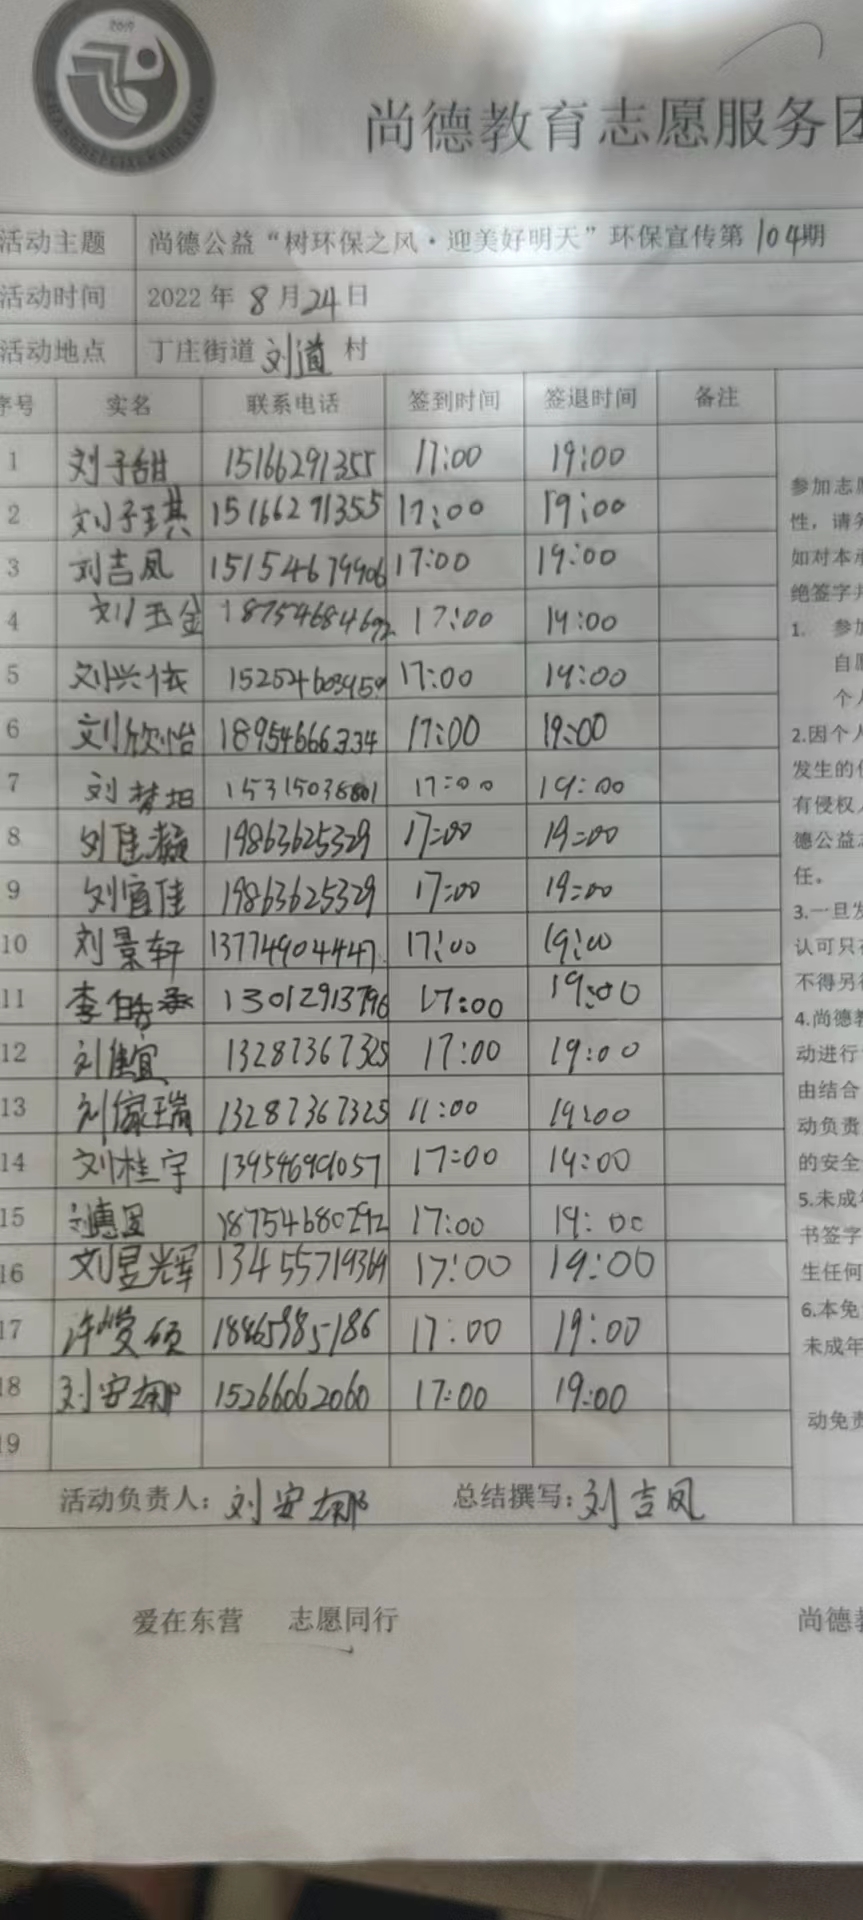 2019
尚德教育志愿服务团
活动主题 尚德公益“树环保之风·迎美好明天”环保宣传第104期
活动时间 2022年8月24日
活动地点 丁庄街道刘道村
序号 实名 联系电话 签到时间 签退时间 备注
1 刘子甜 15166291355 17:00 19:00
2 刘子琪 15166291355 17:00 19:00
3 刘吉凤 15154679906 17:00 19:00
4 刘玉金 18754684692 17:00 19:00
5 刘兴依 15252460345 17:00 19:00
6 刘欣怡 18954666334 17:00 19:00
7 刘梦 15315038801 17:00 19:00
8 刘佳凝 19863625329 17:00 19:00
9 刘宜佳 19863625329 17:00 19:00
10 刘景轩 13774904447 17:00 19:00
11 李皓承 13012913796 17:00 19:00
12 刘佳宜 13287367325 17:00 19:00
13 刘家瑞 13287367325 11:00 19:00
14 刘桂宇 13954690057 17:00 19:00
15 刘惠 18754680292 17:00 19:00
16 刘昱辉 13455719369 17:00 19:00
17 许峻硕 18465985186 17:00 19:00
18 刘安娜 15266062060 17:00 19:00
19
活动负责人：刘安娜 总结撰写：刘吉凤
参加志愿
性，请务
如对本承
绝签字并
1. 参加
自愿
个人
2.因个人
发生的任
有侵权人
德公益志
任。
3.一旦发
认可只在
不得另行
4.尚德教
动进行
由结合
动负责
的安全
5.未成年
书签字
生任何
6.本免
未成年
动免责
爱在东营 志愿同行
尚德教